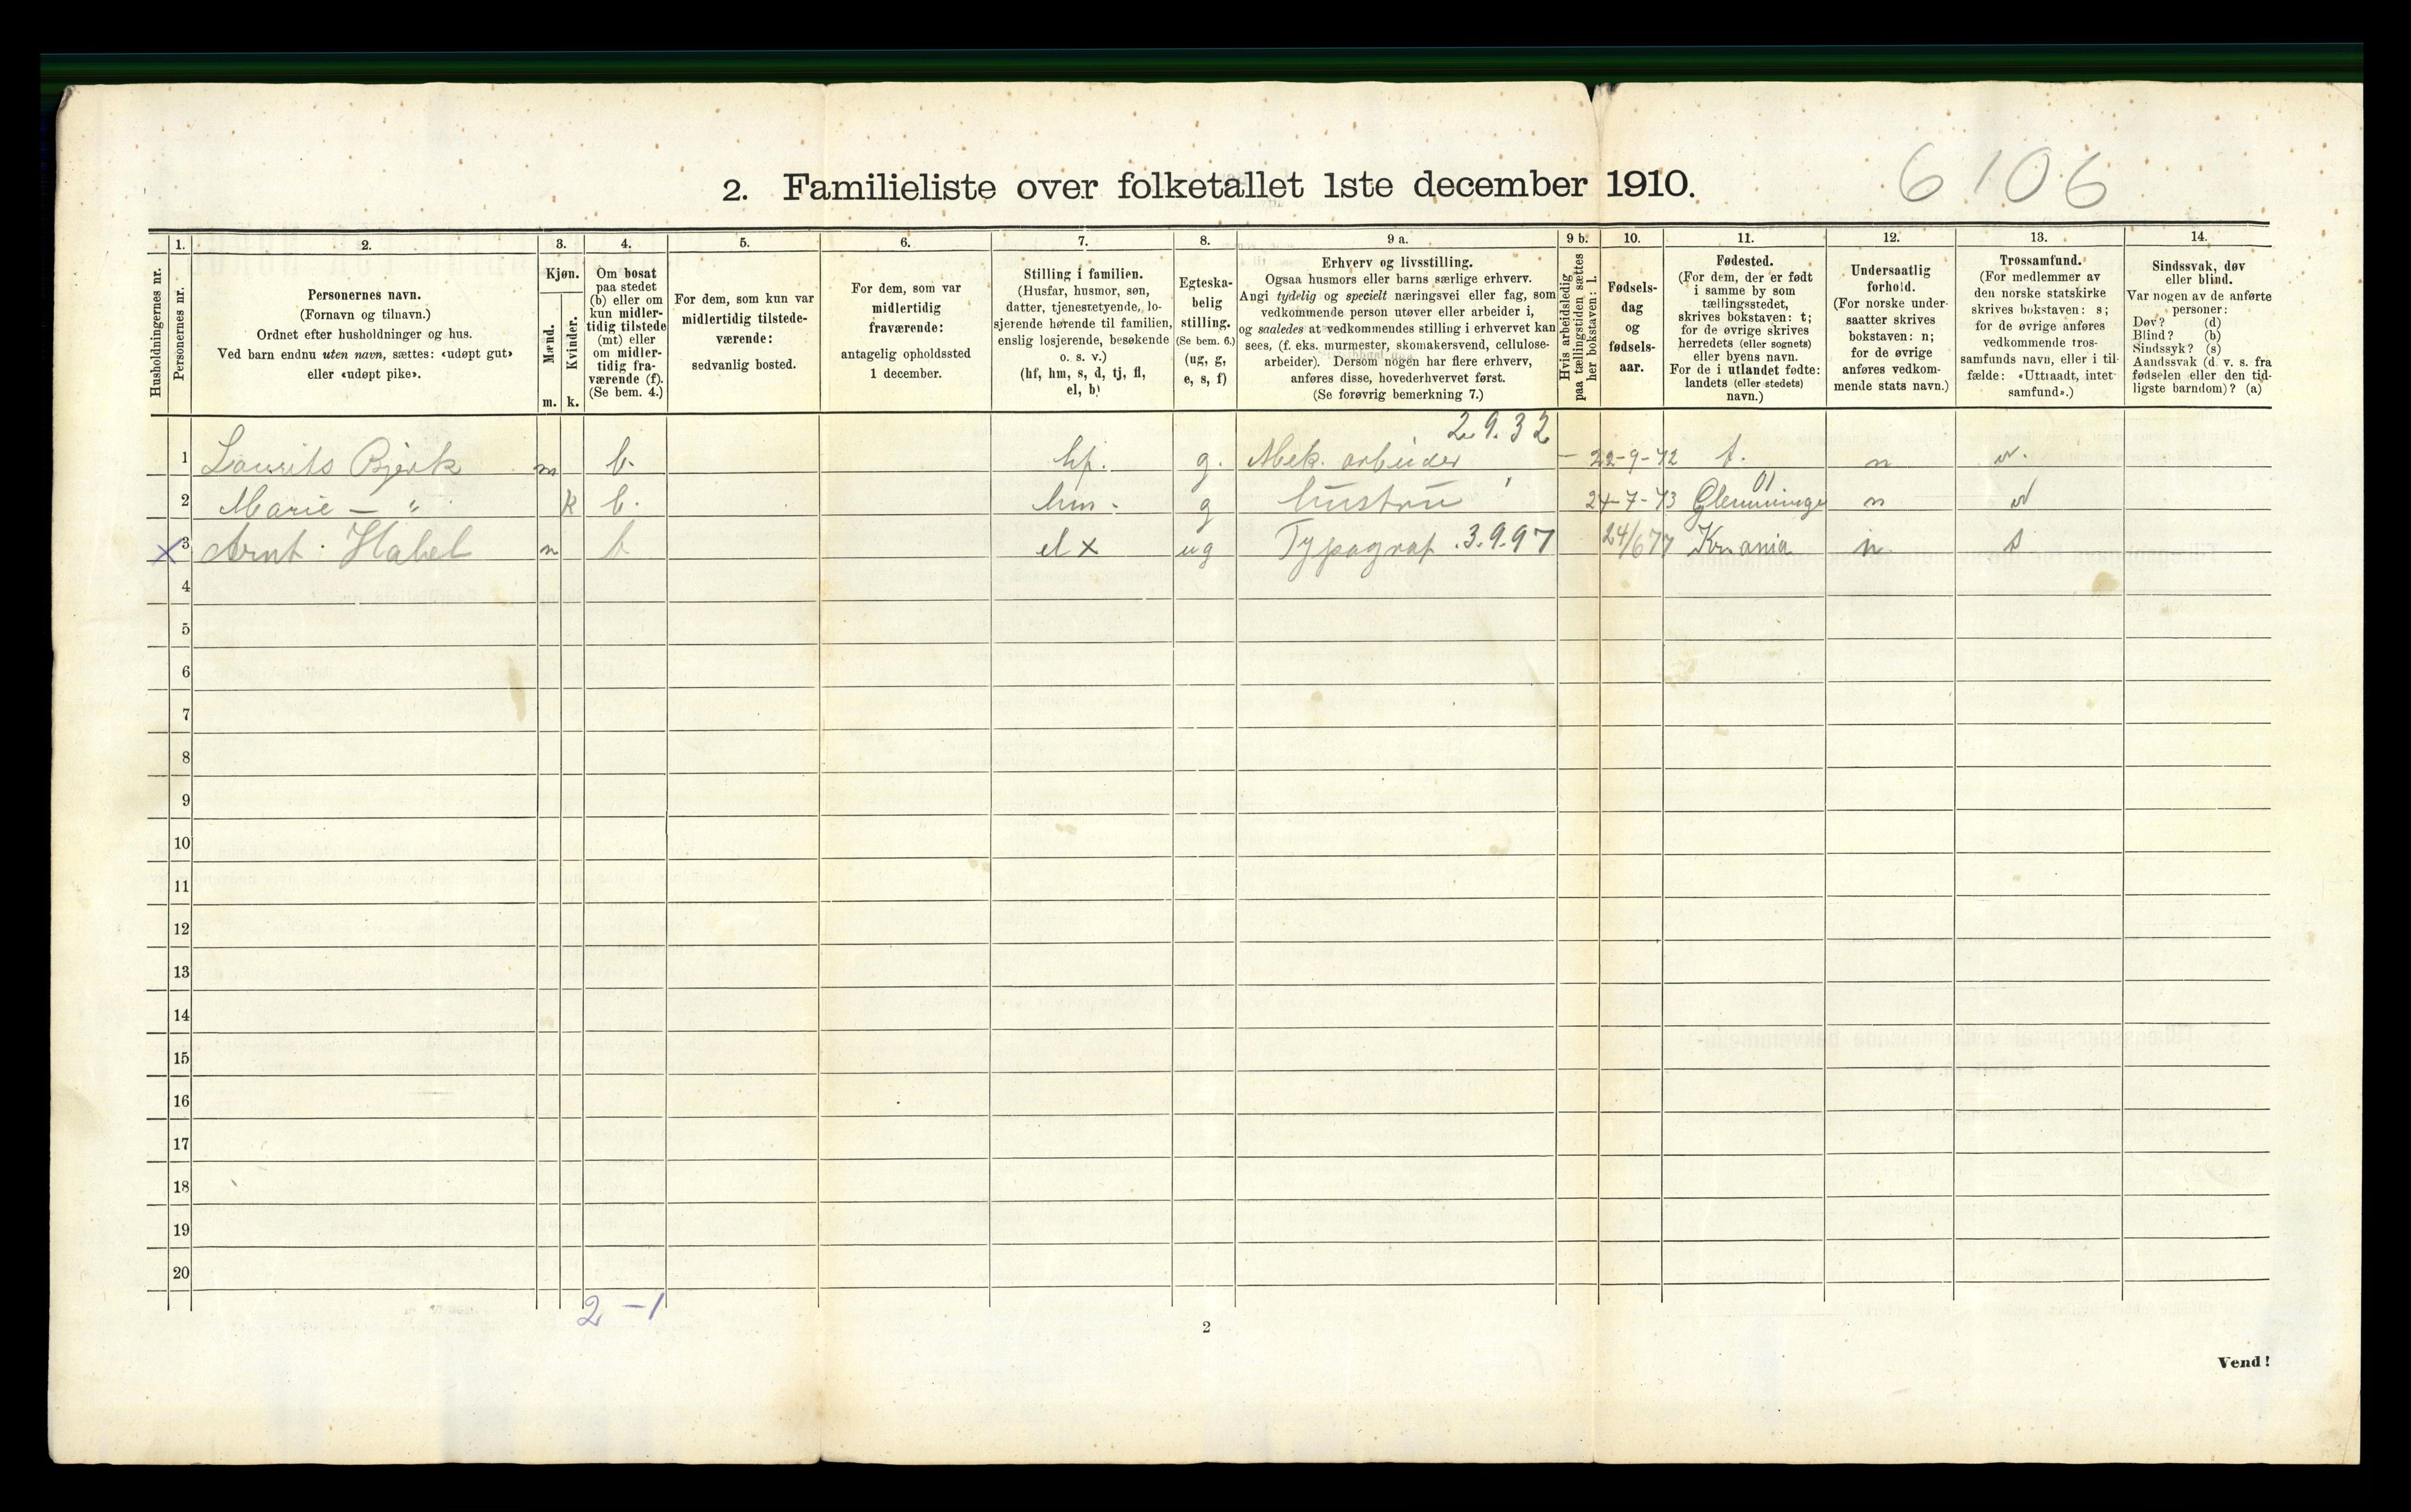 6106
2. Familieliste over folketallet 1ste december 1910.
Husholdningernes nr.
1.
Personernes nr.
2.
Personernes navn.
(Fornavn og tilnavn.)
Ordnet efter husholdninger og hus.
Ved barn endnu uten navn, sættes: «udøpt gut»
eller «udøpt pike».
3.
Kjøn.
Mænd.
Kvinder.
m. k.
4.
Om bosat
paa stedet
(b) eller om
kun midler-
tidig tilstede
(mt) eller
om midler-
tidig fra-
værende (f).
(Se bem. 4.)
5.
For dem, som kun var
midlertidig tilstede-
værende:
sedvanlig bosted.
6.
For dem, som var
midlertidig
fraværende:
antagelig opholdssted
1 december.
7.
Stilling i familien.
(Husfar, husmor, søn,
datter, tjenestetyende, lo-
sjerende hørende til familien,
enslig losjerende, besøkende
o. s. v.)
(hf, hm, s, d, tj, fl,
el, b)
8.
Egteska-
belig
stilling.
(Se bem. 6.)
(ug, g,
e, s, f)
9 a.
Erhverv og livsstilling.
Ogsaa husmors eller barns særlige erhverv.
Angi tydelig og specielt næringsvei eller fag, som
vedkommende person utøver eller arbeider i,
og saaledes at vedkommendes stilling i erhvervet kan
sees, (f. eks. murmester, skomakersvend, cellulose-
arbeider). Dersom nogen har flere erhverv,
anføres disse, hovederhvervet først.
(Se forøvrig bemerkning 7.)
9 b.
Hvis arbeidsledig
paa tællingstiden sættes
her bokstaven: l.
10.
Fødsels-
dag
og
fødsels-
aar.
11.
Fødested.
(For dem, der er født
i samme by som
tællingsstedet,
skrives bokstaven: t;
for de øvrige skrives
herredets (eller sognets)
eller byens navn.
For de i utlandet fødte:
landets (eller stedets)
navn.)
12.
Undersaatlig
forhold.
(For norske under-
saatter skrives
bokstaven: n;
for de øvrige
anføres vedkom-
mende stats navn.)
13.
Trossamfund.
(For medlemmer av
den norske statskirke
skrives bokstaven: s;
for de øvrige anføres
vedkommende tros-
samfunds navn, eller i til-
fælde: «Uttraadt, intet
samfund».)
14.
Sindssvak, døv
eller blind.
Var nogen av de anførte
personer:
Døv? (d)
Blind? (b)
Sindssyk? (s)
Aandssvak (d. v. s. fra
fødselen eller den tid-
ligste barndom)? (a)
2.9.32
1 Laurits Bjerk m b. hf. g. Mek. arbeider - 22-9-72 t. n
01
2 Marie — " k b. hm. g hustru 24-7-73 Glemminge n
X 3 Arnt Habel m b el x ug Typograf 3.9.97 24/6 77 Kr.ania n s
4
5
6
7
8
9
10
11
12
13
14
15
16
17
18
19
20
2 - 1
2
Vend!